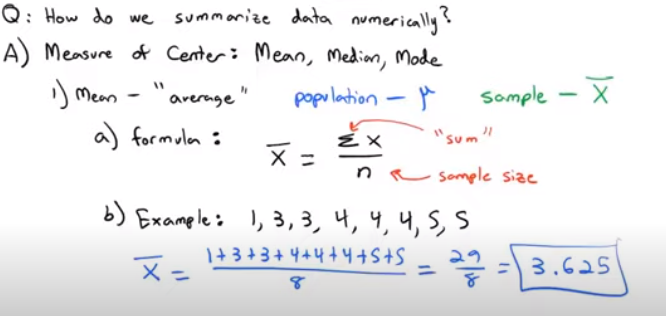 Q: How do we summarize data numerically?
A) Measure of Center: Mean, Median, Mode
1) Mean - "average" population - μ sample - X̄
a) formula: X̄ = Σx / n "sum" sample size
b) Example: 1, 3, 3, 4, 4, 4, 5, 5
X̄ = 1+3+3+4+4+4+5+5 / 8 = 29/8 = 3.625